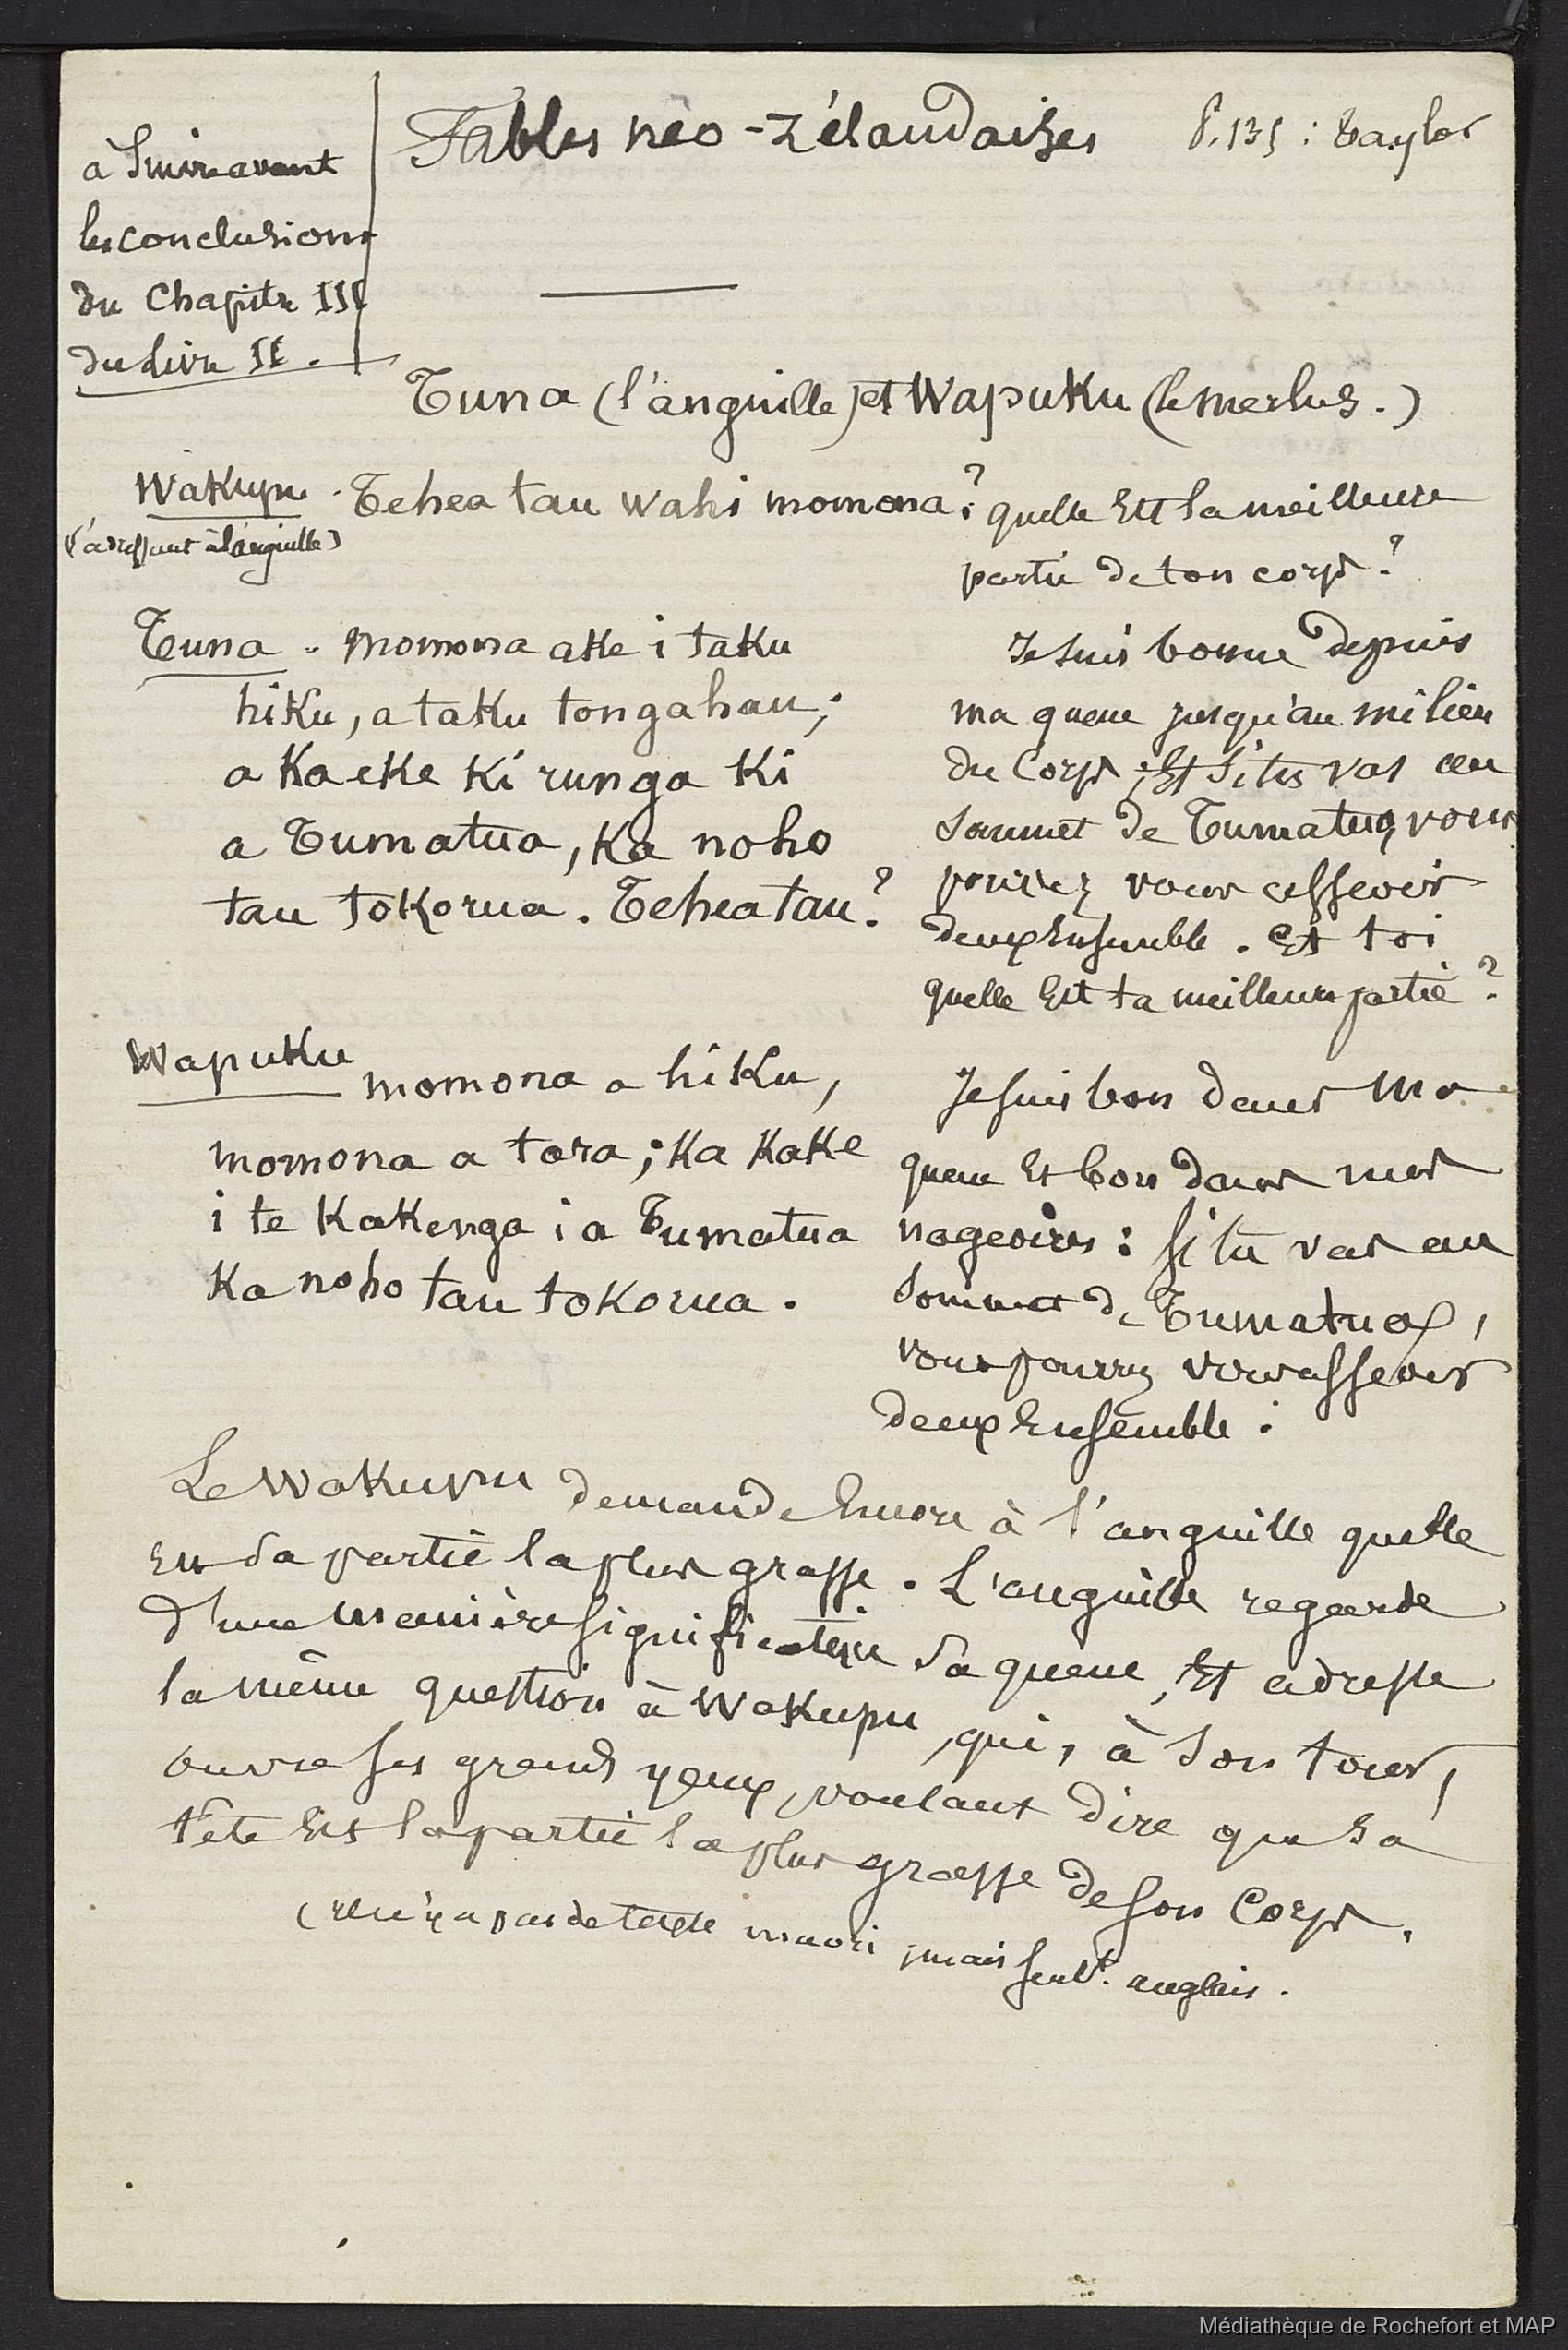 Fables néo-zélandaises P. 135 : Taylor
à suivre avant
les conclusions
du Chapitre III
du Livre II.
Tuna (l'anguille) et Wapuku (le merlus.)
Wakupu. Tehea tau wahi momona? quelle est la meilleure
(s'adressant à l'anguille)
partie de ton corps?
Tuna. momona ake i taku
hiku, a taku tongahau;
a Ka eke Ki runga Ki
a Tumatua, Ka noho
tau toKorua. Tehea tau?
Je suis bonne depuis
ma queue jusqu'au milieu
du Corps; Et si tu vas au
sommet de Tumatua, vous
pouvez vous asseoir
deux Ensemble. Et toi
quelle Est ta meilleure partie?
WapuKu momona a hiKu,
momona a tara; Ka KaKe
i te KaKenga i a Tumatua
Ka noho tau toKorua.
Je suis bon dans ma
queue Et bon dans mes
nageoires: si tu vas au
Sommet de Tumatua,
vous pourrez vous asseoir
deux Ensemble.
Le WaKupu demande Encore à l'anguille quelle
Est sa partie la plus grasse. L'anguille regarde
d'une manière significative sa queue, Et adresse
la même question à WaKupu, qui, à son tour,
ouvre ses grands yeux, voulant dire que sa
tête Est la partie la plus grasse de son Corps.
(il n'y a pas de texte maori, mais seult. anglais.
Médiathèque de Rochefort et MAP